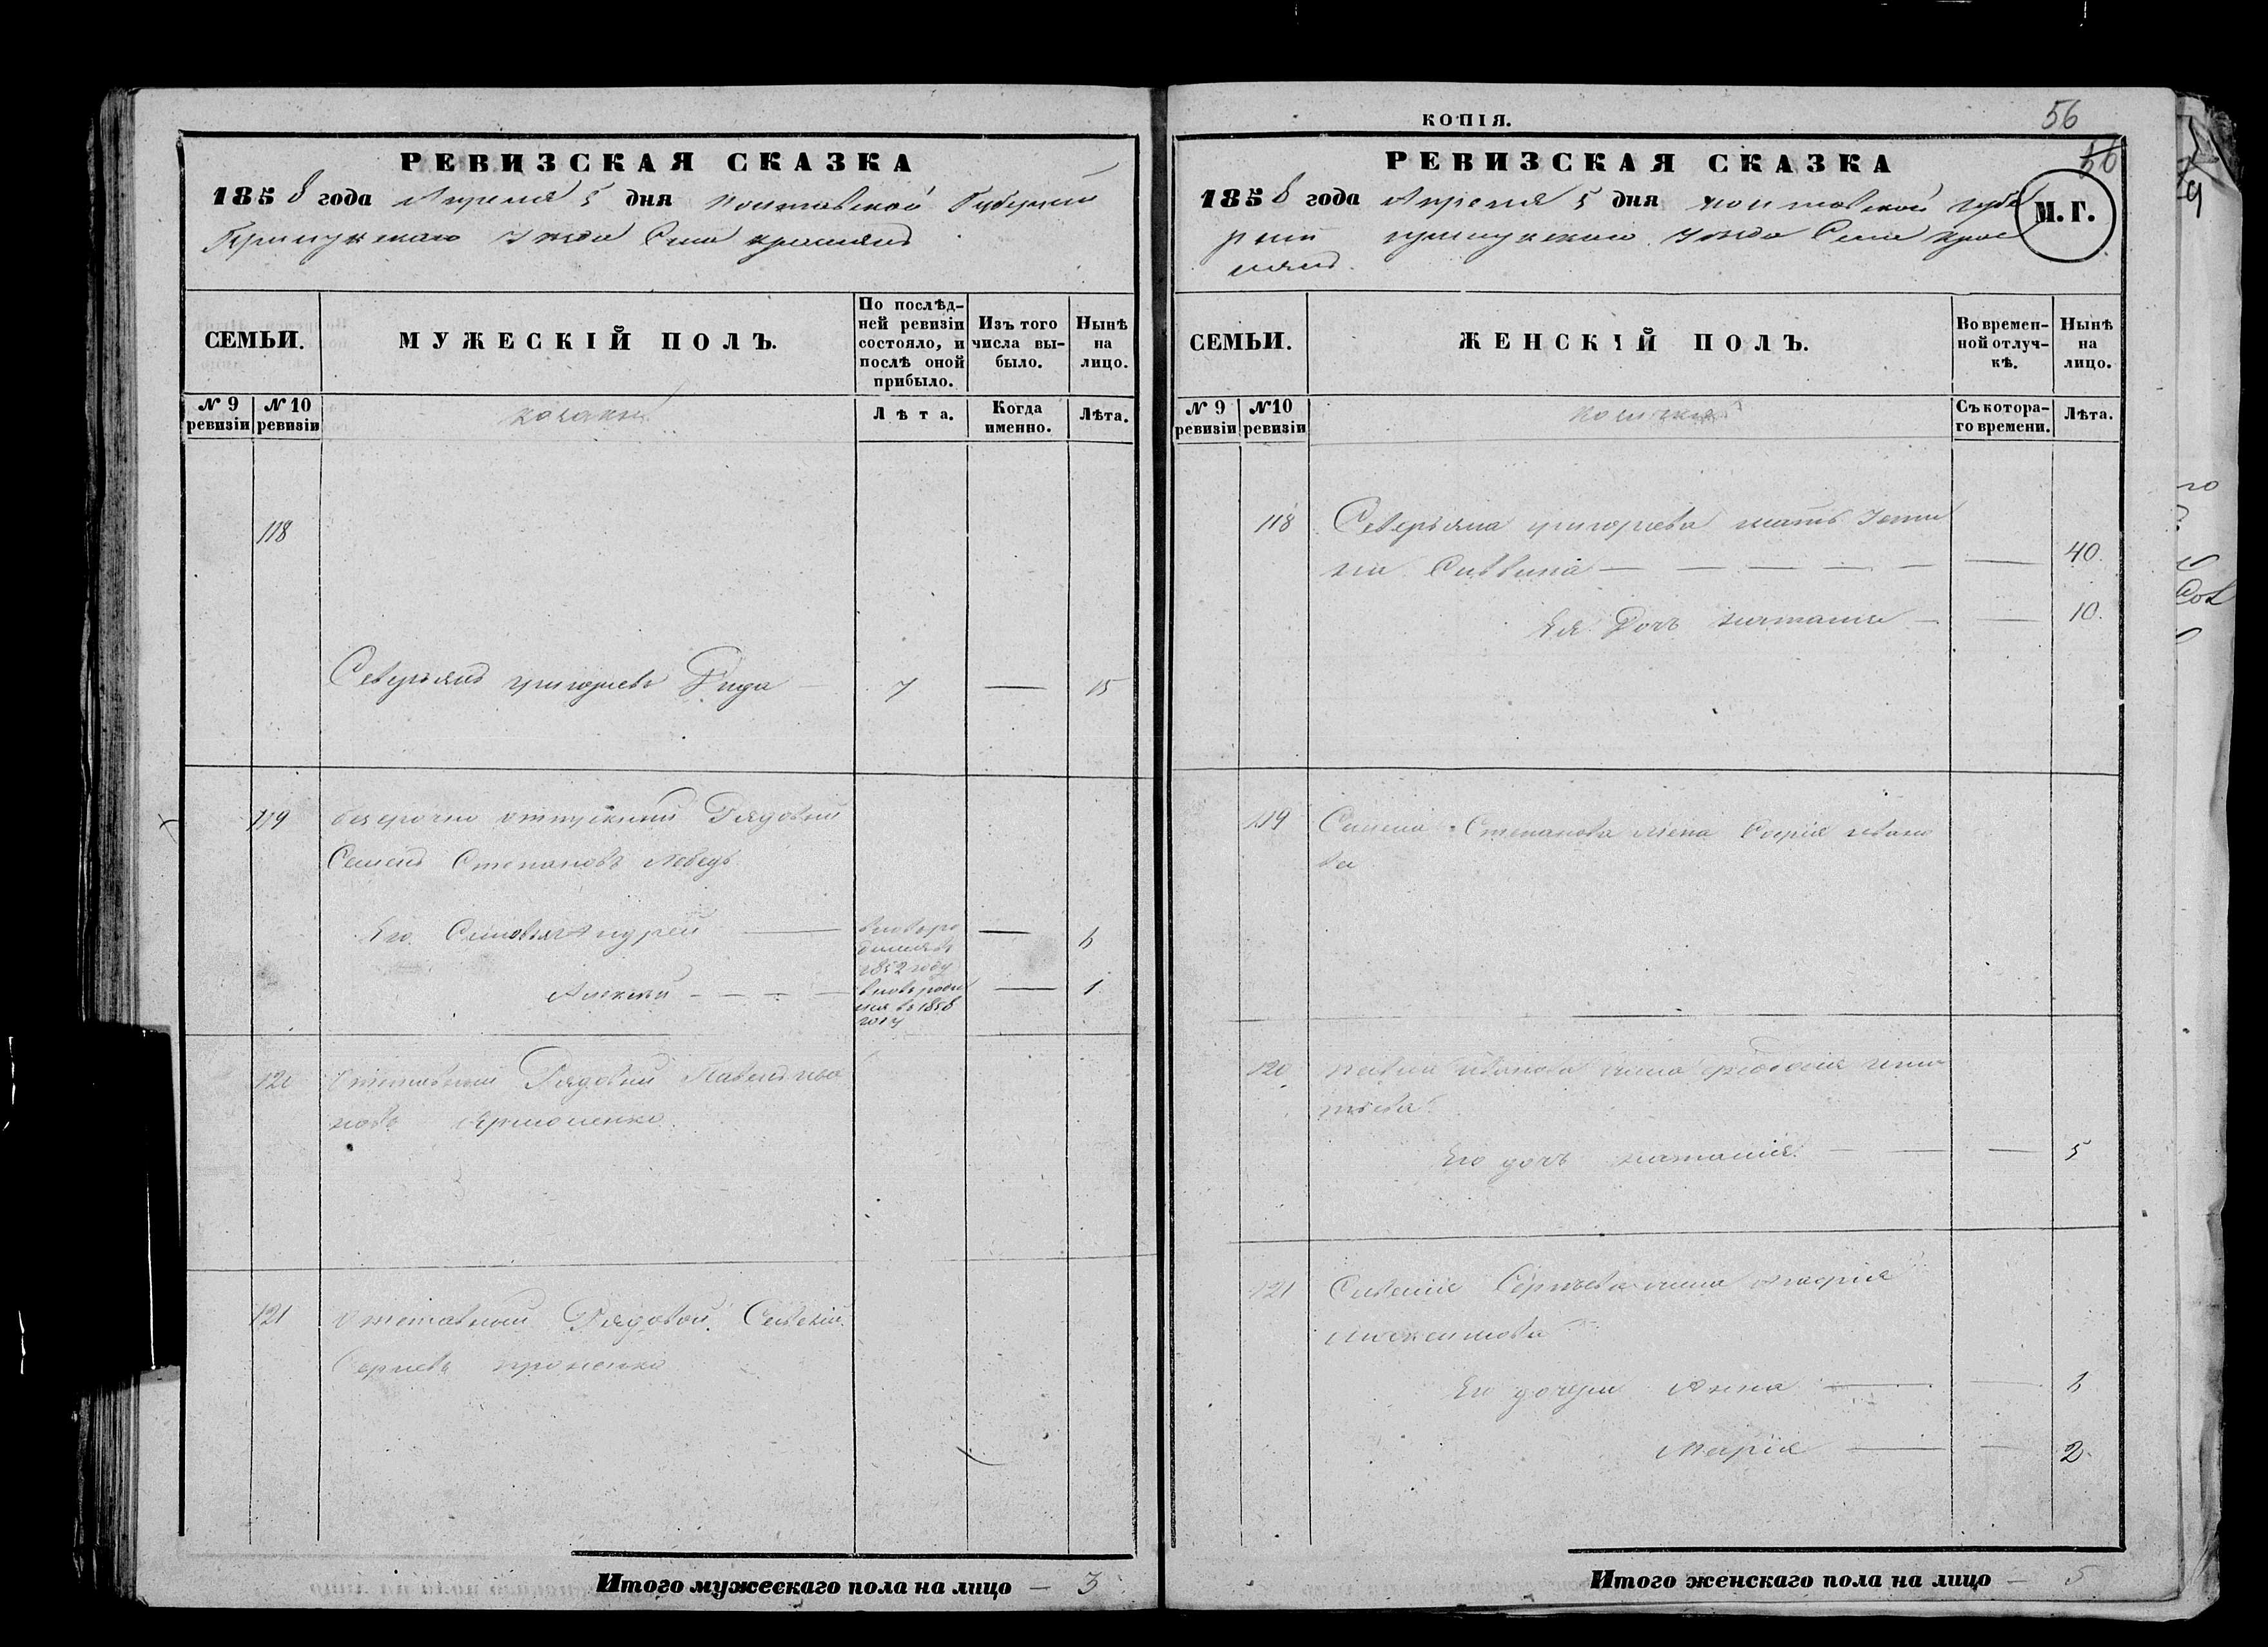 РЕВИЗСКАЯ СКАЗКА
1858 года Апреля 5 дня Полтавской Губернии
Уезда Села
СЕМЬИ.
МУЖЕСКІЙ ПОЛЪ.
По послѣд-
ней ревизіи
состояло, и
послѣ оной
прибыло.
Изъ того
числа вы-
было.
Нынѣ
на
лицо.
№ 9
ревизіи
№ 10
ревизіи
козаки
Лѣта.
Когда
именно.
Лѣта.
118
Северьянъ Григорьевъ
7 — 15
119
безсрочно отпускный Рядовый
Семенъ Степановъ Лебедь
Его Сыновья —
вновь ро
дился въ
1852 году
— 6
Алексей - - - -
вновь роди
лся въ 1858
году
— 1
120
Отставный Рядовый Павелъ Ива
новъ Ярмоленко
121
Отставный Рядовой Савелій
Сергіевъ
Итого мужескаго пола на лицо — 3
КОПІЯ.
56
56
РЕВИЗСКАЯ СКАЗКА
1858 года Апреля 5 дня Полтавской Губе
рніи Уезда Села
М. Г.
СЕМЬИ.
ЖЕНСКІЙ ПОЛЪ.
Во времен-
ной отлуч-
кѣ.
Нынѣ
на
лицо.
№ 9
ревизіи
№10
ревизіи
Съ котора-
го времени.
Лѣта.
118
Северьяна Григорьева мать Усти
нія Саввина — — — — — — 40.
Ея Дочъ Наталія — — 10.
119
Семена Степанова жена Софія Ивано
ва
120
Павла Иванова жена Феодосія Игна
тьева
Его дочъ Наталія — — — 5
121
Савелія Сергіева жена Марфія
Максимова
Его дочери Анна — — 6
Марія — — 2
Итого женскаго пола на лицо — 5